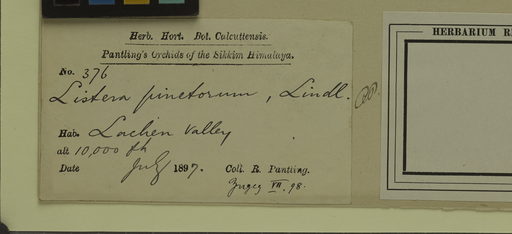 Herb. Hort. Bot. Calcuttensis.
Pantling's Orchids of the Sikkim Himalaya.
No. 376
Listera pinetorum, Lindl.
Hab. Lachen Valley
alt 10,000 ft
Date July 1897. Coll. R. Pantling.
VII. 98.
HERBARIUM